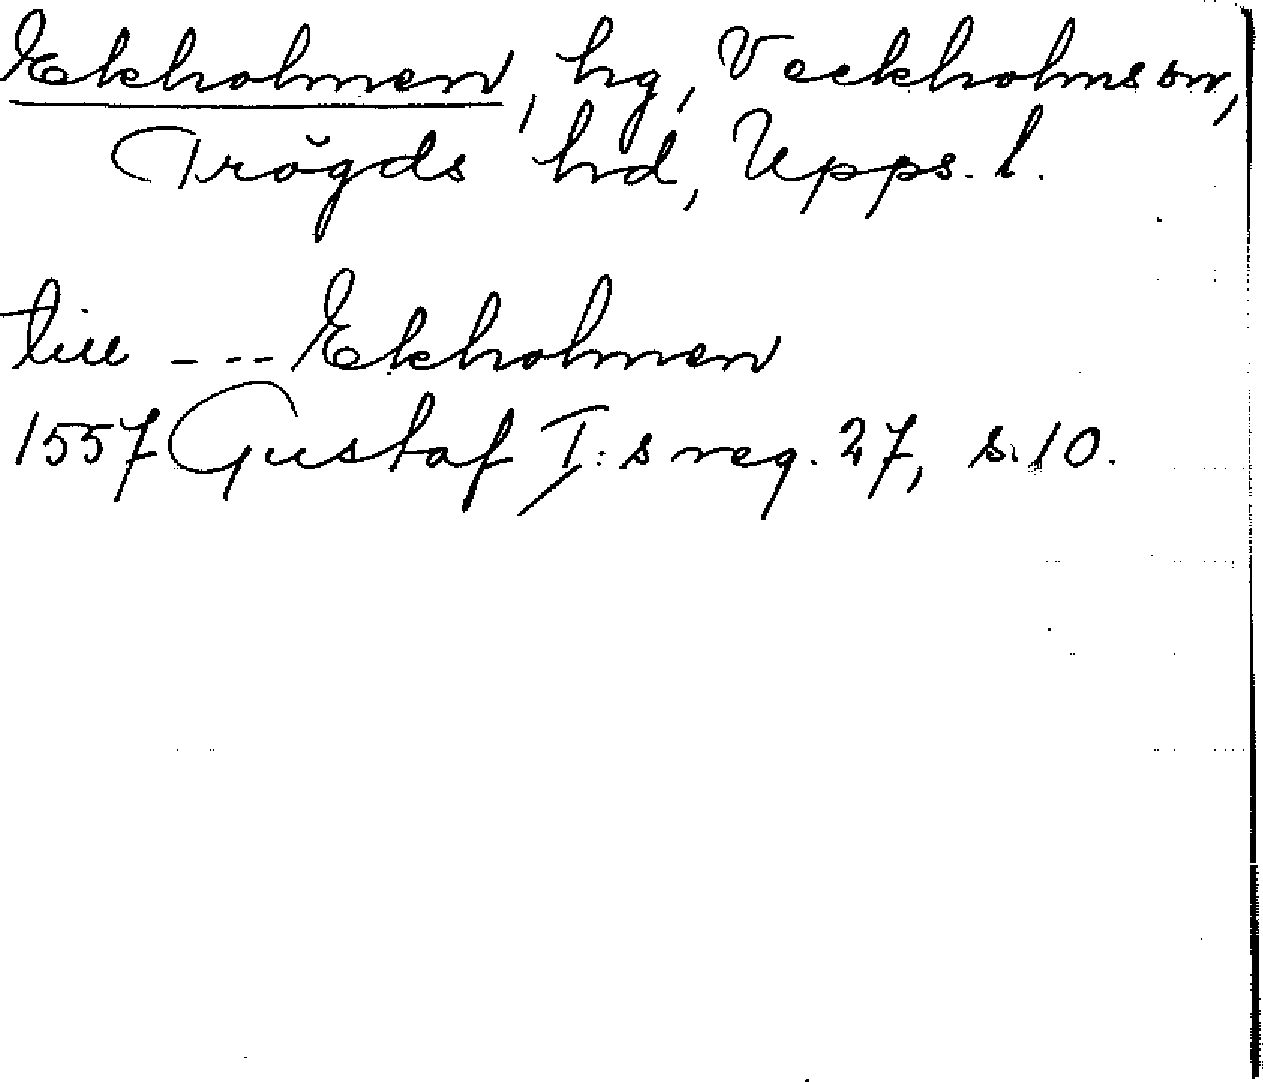 Ekholmen, hg, Veckholms sn,
Trögds hd, Upps. l.
till --- Ekholmen
1557 Gustaf I:s reg. 27, s. 10.